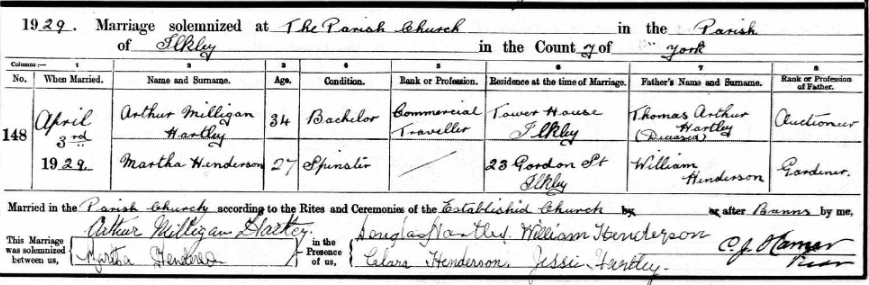 1929. Marriage solemnized at The Parish Church in the Parish
of Ilkley in the County of York
Columns:— 1 2 3 4 5 6 7 8
No. When Married. Name and Surname. Age. Condition. Rank or Profession. Residence at the time of Marriage. Father's Name and Surname. Rank or Profession of Father.
148 April 3rd 1929. Arthur Milligan Hartley 34 Bachelor Commercial Traveller Tower House Ilkley Thomas Arthur Hartley (Deceased) Auctioneer
Martha Henderson 27 Spinster 23 Gordon St Ilkley William Henderson Gardener.
Married in the Parish Church according to the Rites and Ceremonies of the Established Church by or after Banns by me,
This Marriage was solemnized between us, Arthur Milligan Hartley. Martha Henderson in the Presence of us, Douglas Hartley William Henderson Clara Henderson. Jessie Hartley.
Vicar